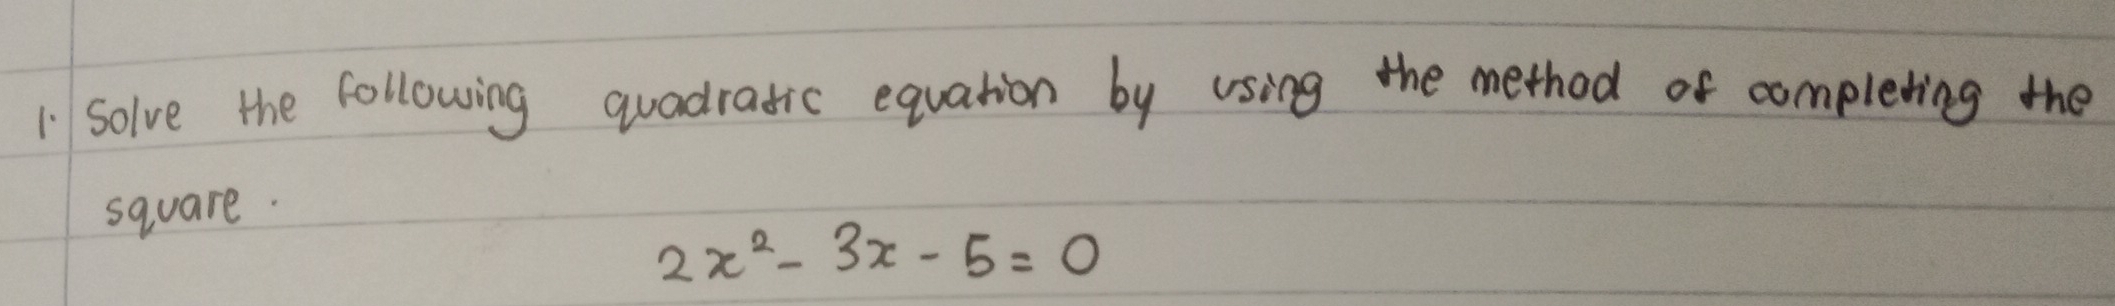 1. Solve the following quadratic equation by using the method of completing the
square.
2x² - 3x - 5 = 0